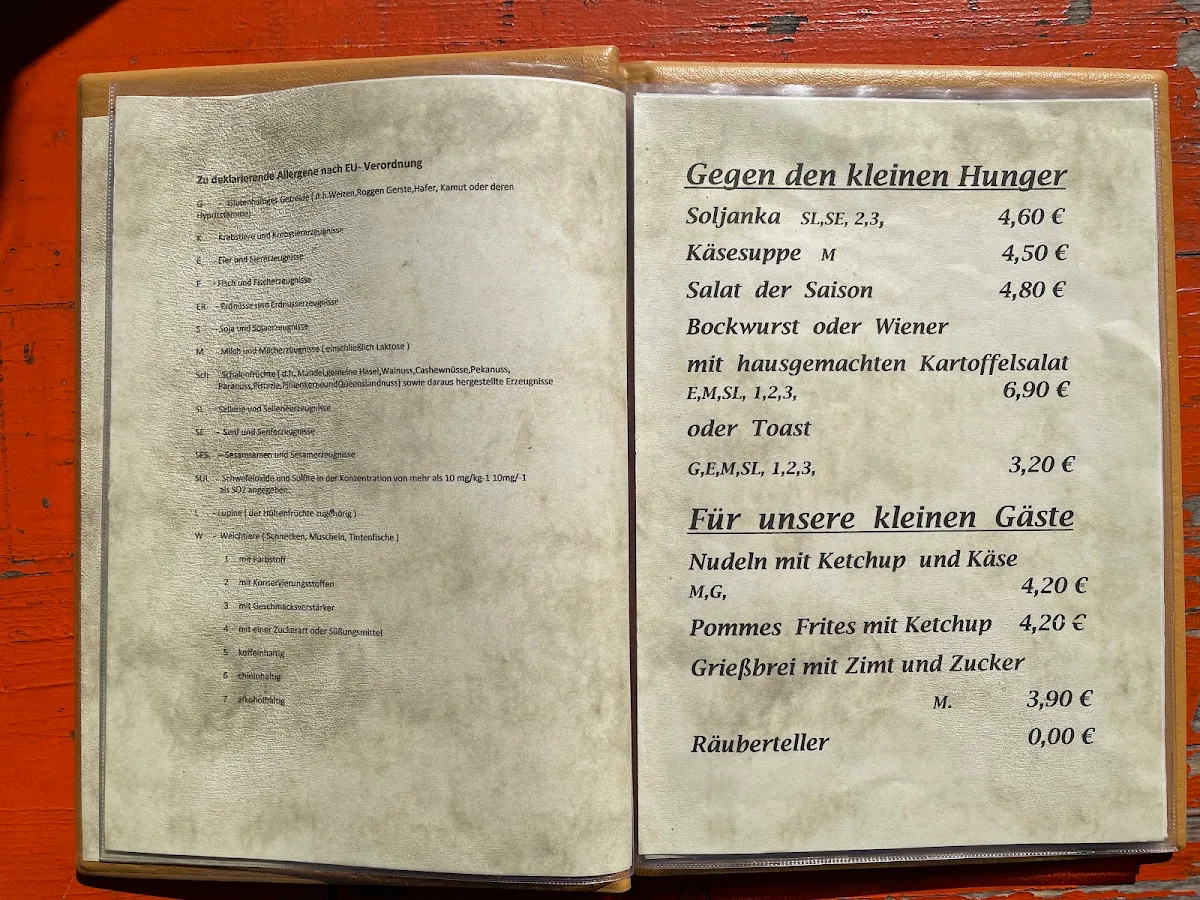 Zu deklarierende Allergene nach EU- Verordnung
G - Glutenhaltiges Getreide ( d.h.Weizen,Roggen Gerste,Hafer, Kamut oder deren
Hypritstämme)
K - Krebstiere und Krebstiererzeugnisse
E - Eier und Eiererzeugnisse
F - Fisch und Fischerzeugnisse
ER - Erdnüsse und Erdnusserzeugnisse
S - Soja und Sojaerzeugnisse
M - Milch und Milcherzeugnisse ( einschließlich Laktose )
Sch - Schalenfrüchte ( d.h, Mandel,gemeine Hasel,Walnuss,Cashewnüsse,Pekanuss,
Paranuss,Pistazie,PinienkerneundQueenslandnuss) sowie daraus hergestellte Erzeugnisse
SL - Sellerie und Sellerieerzeugnisse
SE - Senf und Senferzeugnisse
SES - Sesamsamen und Sesamerzeugnisse
SUL - Schwefeloxide und Sulfite in der Konzentration von mehr als 10 mg/kg-1 10mg/-1
als SO2 angegeben.
L - Lupine ( der Hülsenfrüchte zugehörig )
W - Weichtiere ( Schnecken, Muscheln, Tintenfische )
1 mit Farbstoff
2 mit Konservierungsstoffen
3 mit Geschmacksverstärker
4 mit einer Zuckerart oder Süßungsmittel
5 koffeinhaltig
6 chininhaltig
7 alkoholhaltig
Gegen den kleinen Hunger
Soljanka SL,SE, 2,3, 4,60 €
Käsesuppe M 4,50 €
Salat der Saison 4,80 €
Bockwurst oder Wiener
mit hausgemachten Kartoffelsalat
E,M,SL, 1,2,3, 6,90 €
oder Toast
G,E,M,SL, 1,2,3, 3,20 €
Für unsere kleinen Gäste
Nudeln mit Ketchup und Käse
M,G, 4,20 €
Pommes Frites mit Ketchup 4,20 €
Grießbrei mit Zimt und Zucker
M. 3,90 €
Räuberteller 0,00 €